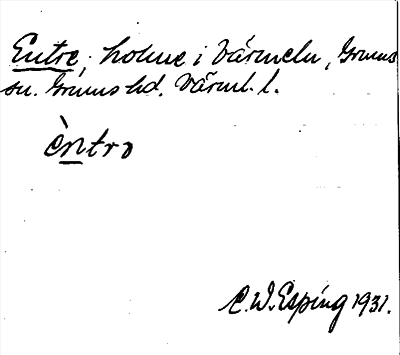 Entre, holme i Värmeln, Grums
sn. Grums hd. Värml. l.
èntro
C. W. Esping 1931.